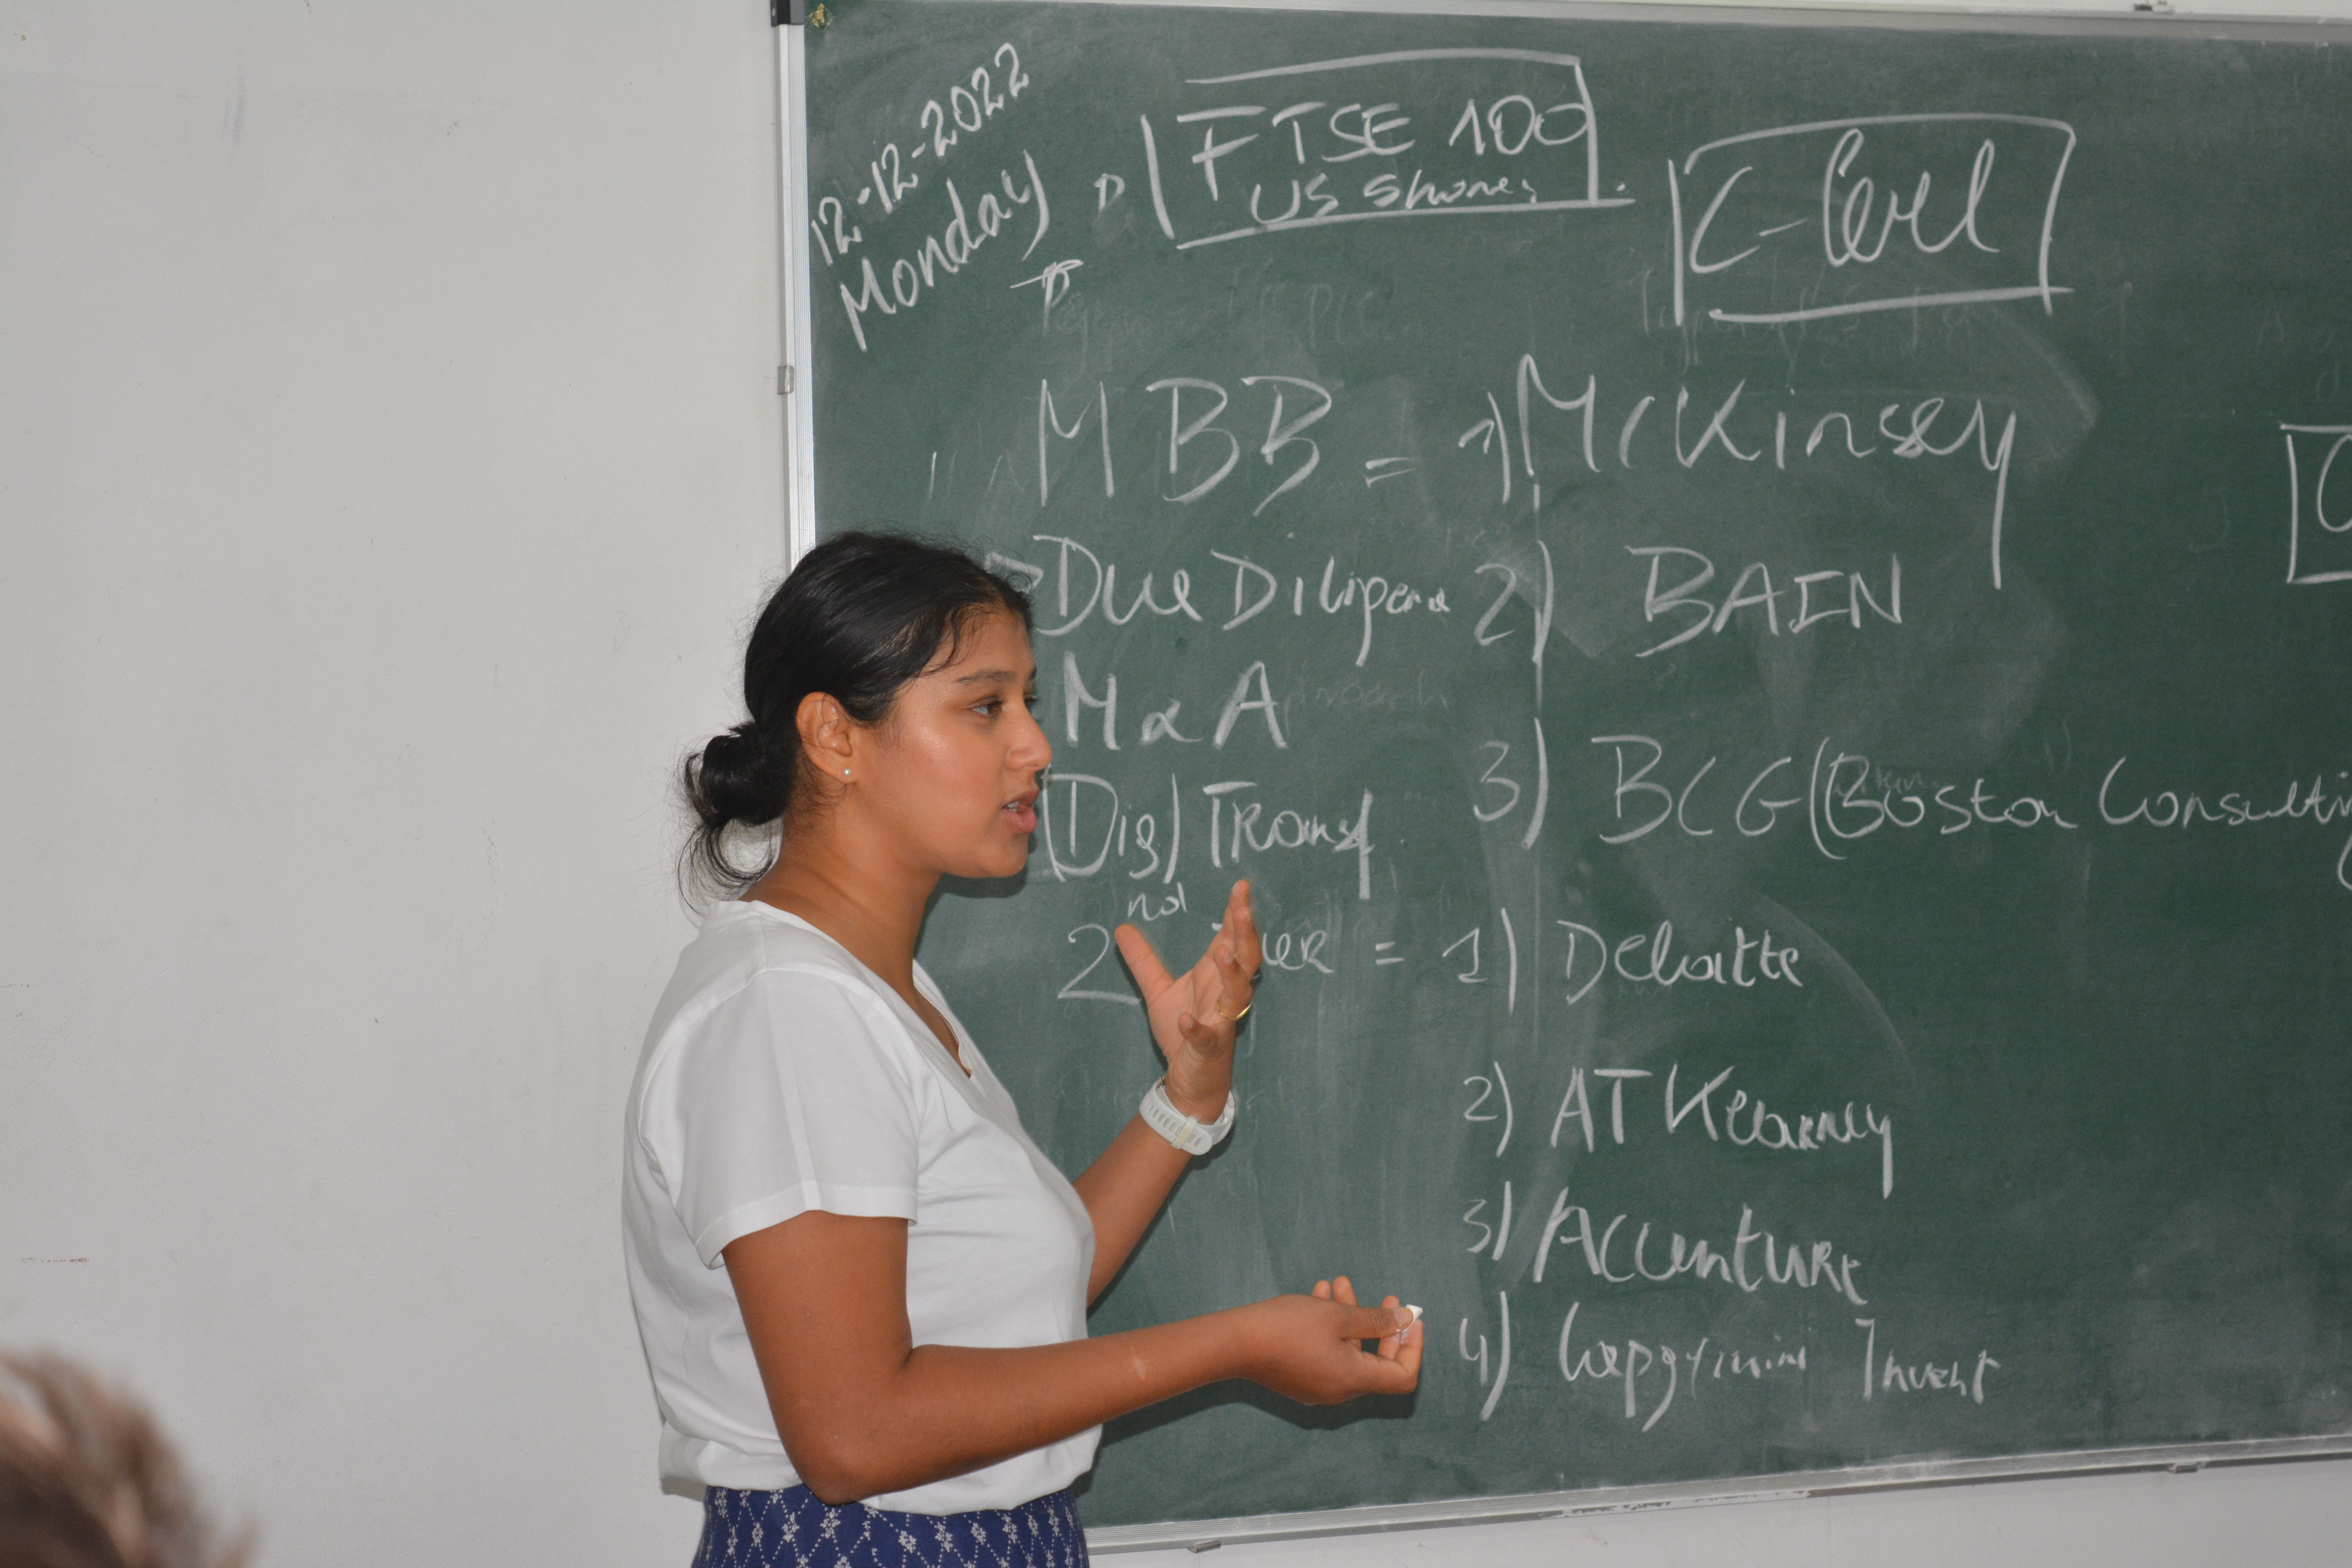 12-12-2022
Monday
FTSE 100
US Shares
C-level
MBB = 1) McKinsey
Due Diligence 2) BAIN
M & A
3) BCG (Boston Consulting
(Dig) Transf
2nd Tier = 1) Deloitte
2) AT Kearney
3) Accenture
4) Capgemini Invent